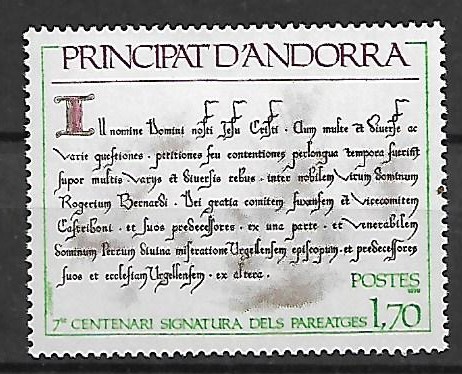 PRINCIPAT D'ANDORRA
In nomine Domini nostri Jesu Cristi · Cum multe et diverse ac
varie questiones · petitiones seu contentiones perlongua tempora fuerint
supor multis varys et diversis rebus · inter nobilem virum dominum
Rogerium Bernardi · Dei gratia comitem fuxensem et vicecomitem
Castriboni · et suos predecessores · ex una parte · et venerabilem
dominum Petrum divina miseratione Urgellensem episcopum et predecessores
suos et ecclesiam Urgellensem · ex altera ·
POSTES
1978
7È CENTENARI SIGNATURA DELS PAREATGES 1,70